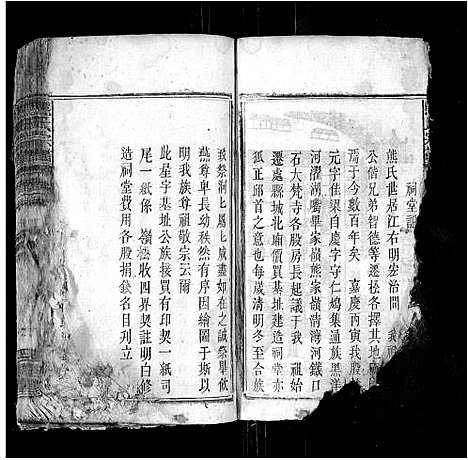 祠堂記
熊氏世居江右明宏治間 我
公偕兄弟智德等遷楚各擇其地
焉于今數百年矣 嘉慶丙寅我股
元字佳渠自慶字守仁鳩集通族黑洋
河濯湖嘴畢家嶺熊家嶺清灣河鐵口
石大梵寺各股房長起議于我 祖始
遷處縣城北廟價買基址建造祠堂亦
狐正邱首之意也每歲清明冬至合族
致祭洞七屬七咸盡如在之誠祭畢飲
燕尊卑長幼秩然有序因繪圖于斯以
明我族尊祖敬宗云爾
此星字基址公族接買有印契一紙司
尾一紙係 嶺極收四界契註明白修
造祠堂費用各股捐錢名目列立